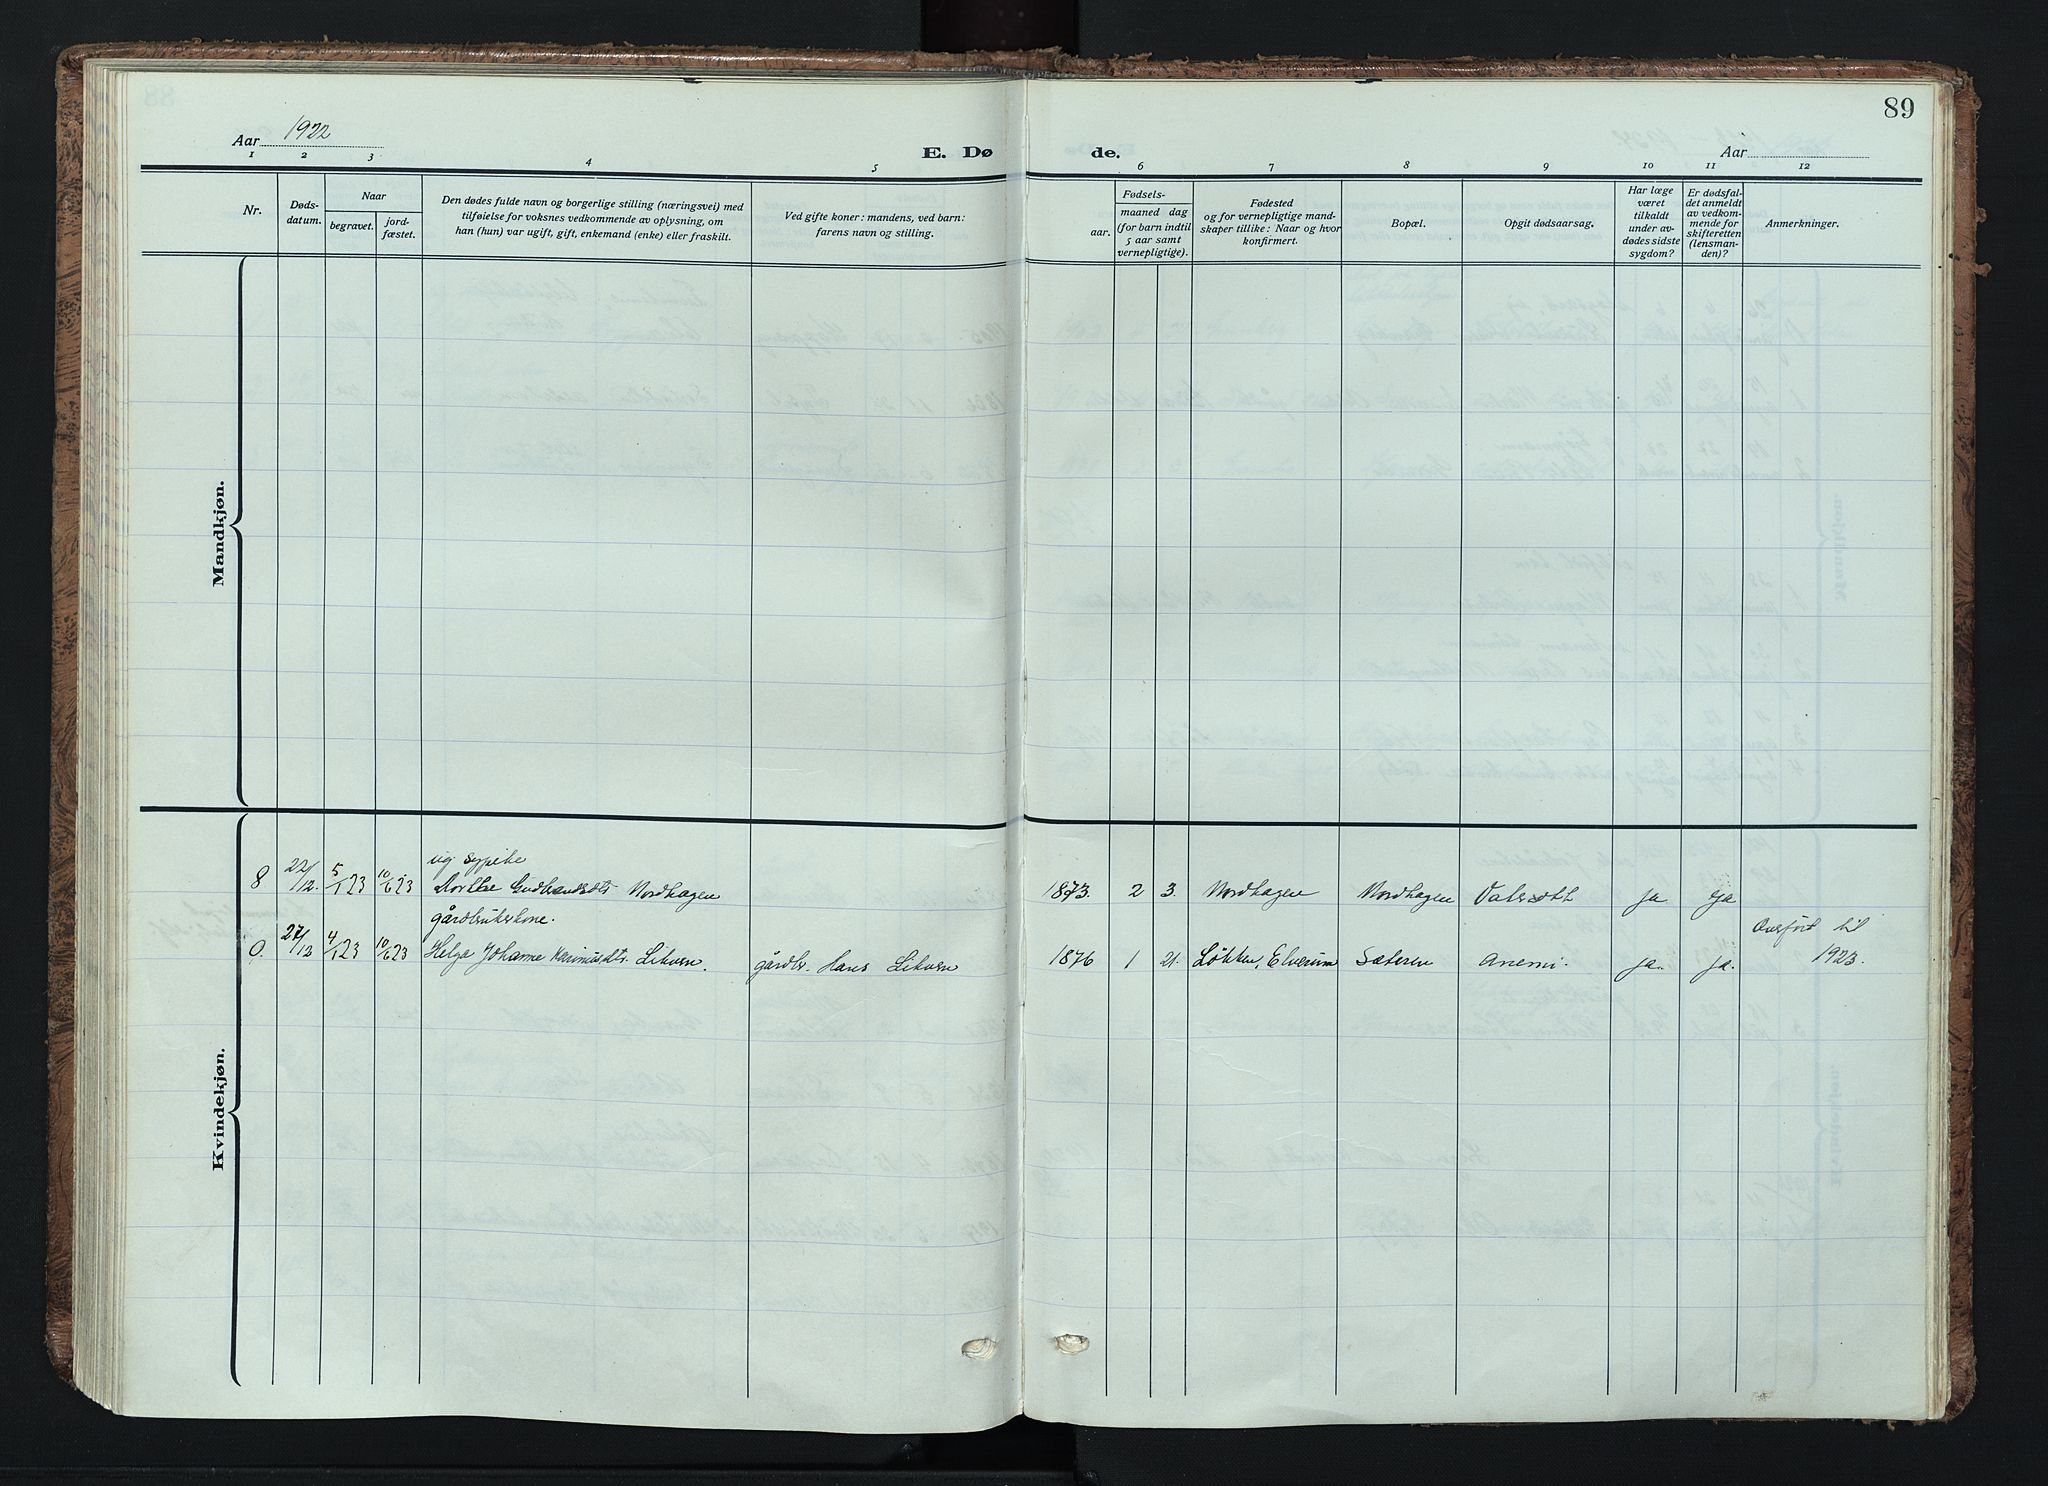 89
Aar 1922
E. Døde.
Aar
1 2 3 4 5 6 7 8 9 10 11 12
Nr.
Døds-
datum.
Naar
begravet.
jord-
fæstet.
Den dødes fulde navn og borgerlige stilling (næringsvei) med
tilføielse for voksnes vedkommende av oplysning, om
han (hun) var ugift, gift, enkemand (enke) eller fraskilt.
Ved gifte koner: mandens, ved barn:
farens navn og stilling.
Fødsels-
aar.
maaned dag
(for barn indtil
5 aar samt
vernepligtige).
Fødested
og for vernepligtige mand-
skaper tillike: Naar og hvor
konfirmert.
Bopæl.
Opgit dødsaarsag.
Har læge
været
tilkaldt
under av-
dødes sidste
sygdom?
Er dødsfal-
det anmeldt
av vedkom-
mende for
skifteretten
(lensman-
den)?
Anmerkninger.
Mandkjøn.
Kvindekjøn.
ug sypike
8 22/12. 5/1 23 10/6 23 Dorthe Gudbrandsdtr Nordhagen 1873. 2 3. Nordhagen Nordhagen ja ja
gårdbrukerkone.
Overført til
27/12 4/1 23 10/6 23 Helga Johanne Liknen. gårdbr. Hans Liknen 1876 1 21. Løkken, Elverum Sæteren Anemi. ja. ja. 1923.